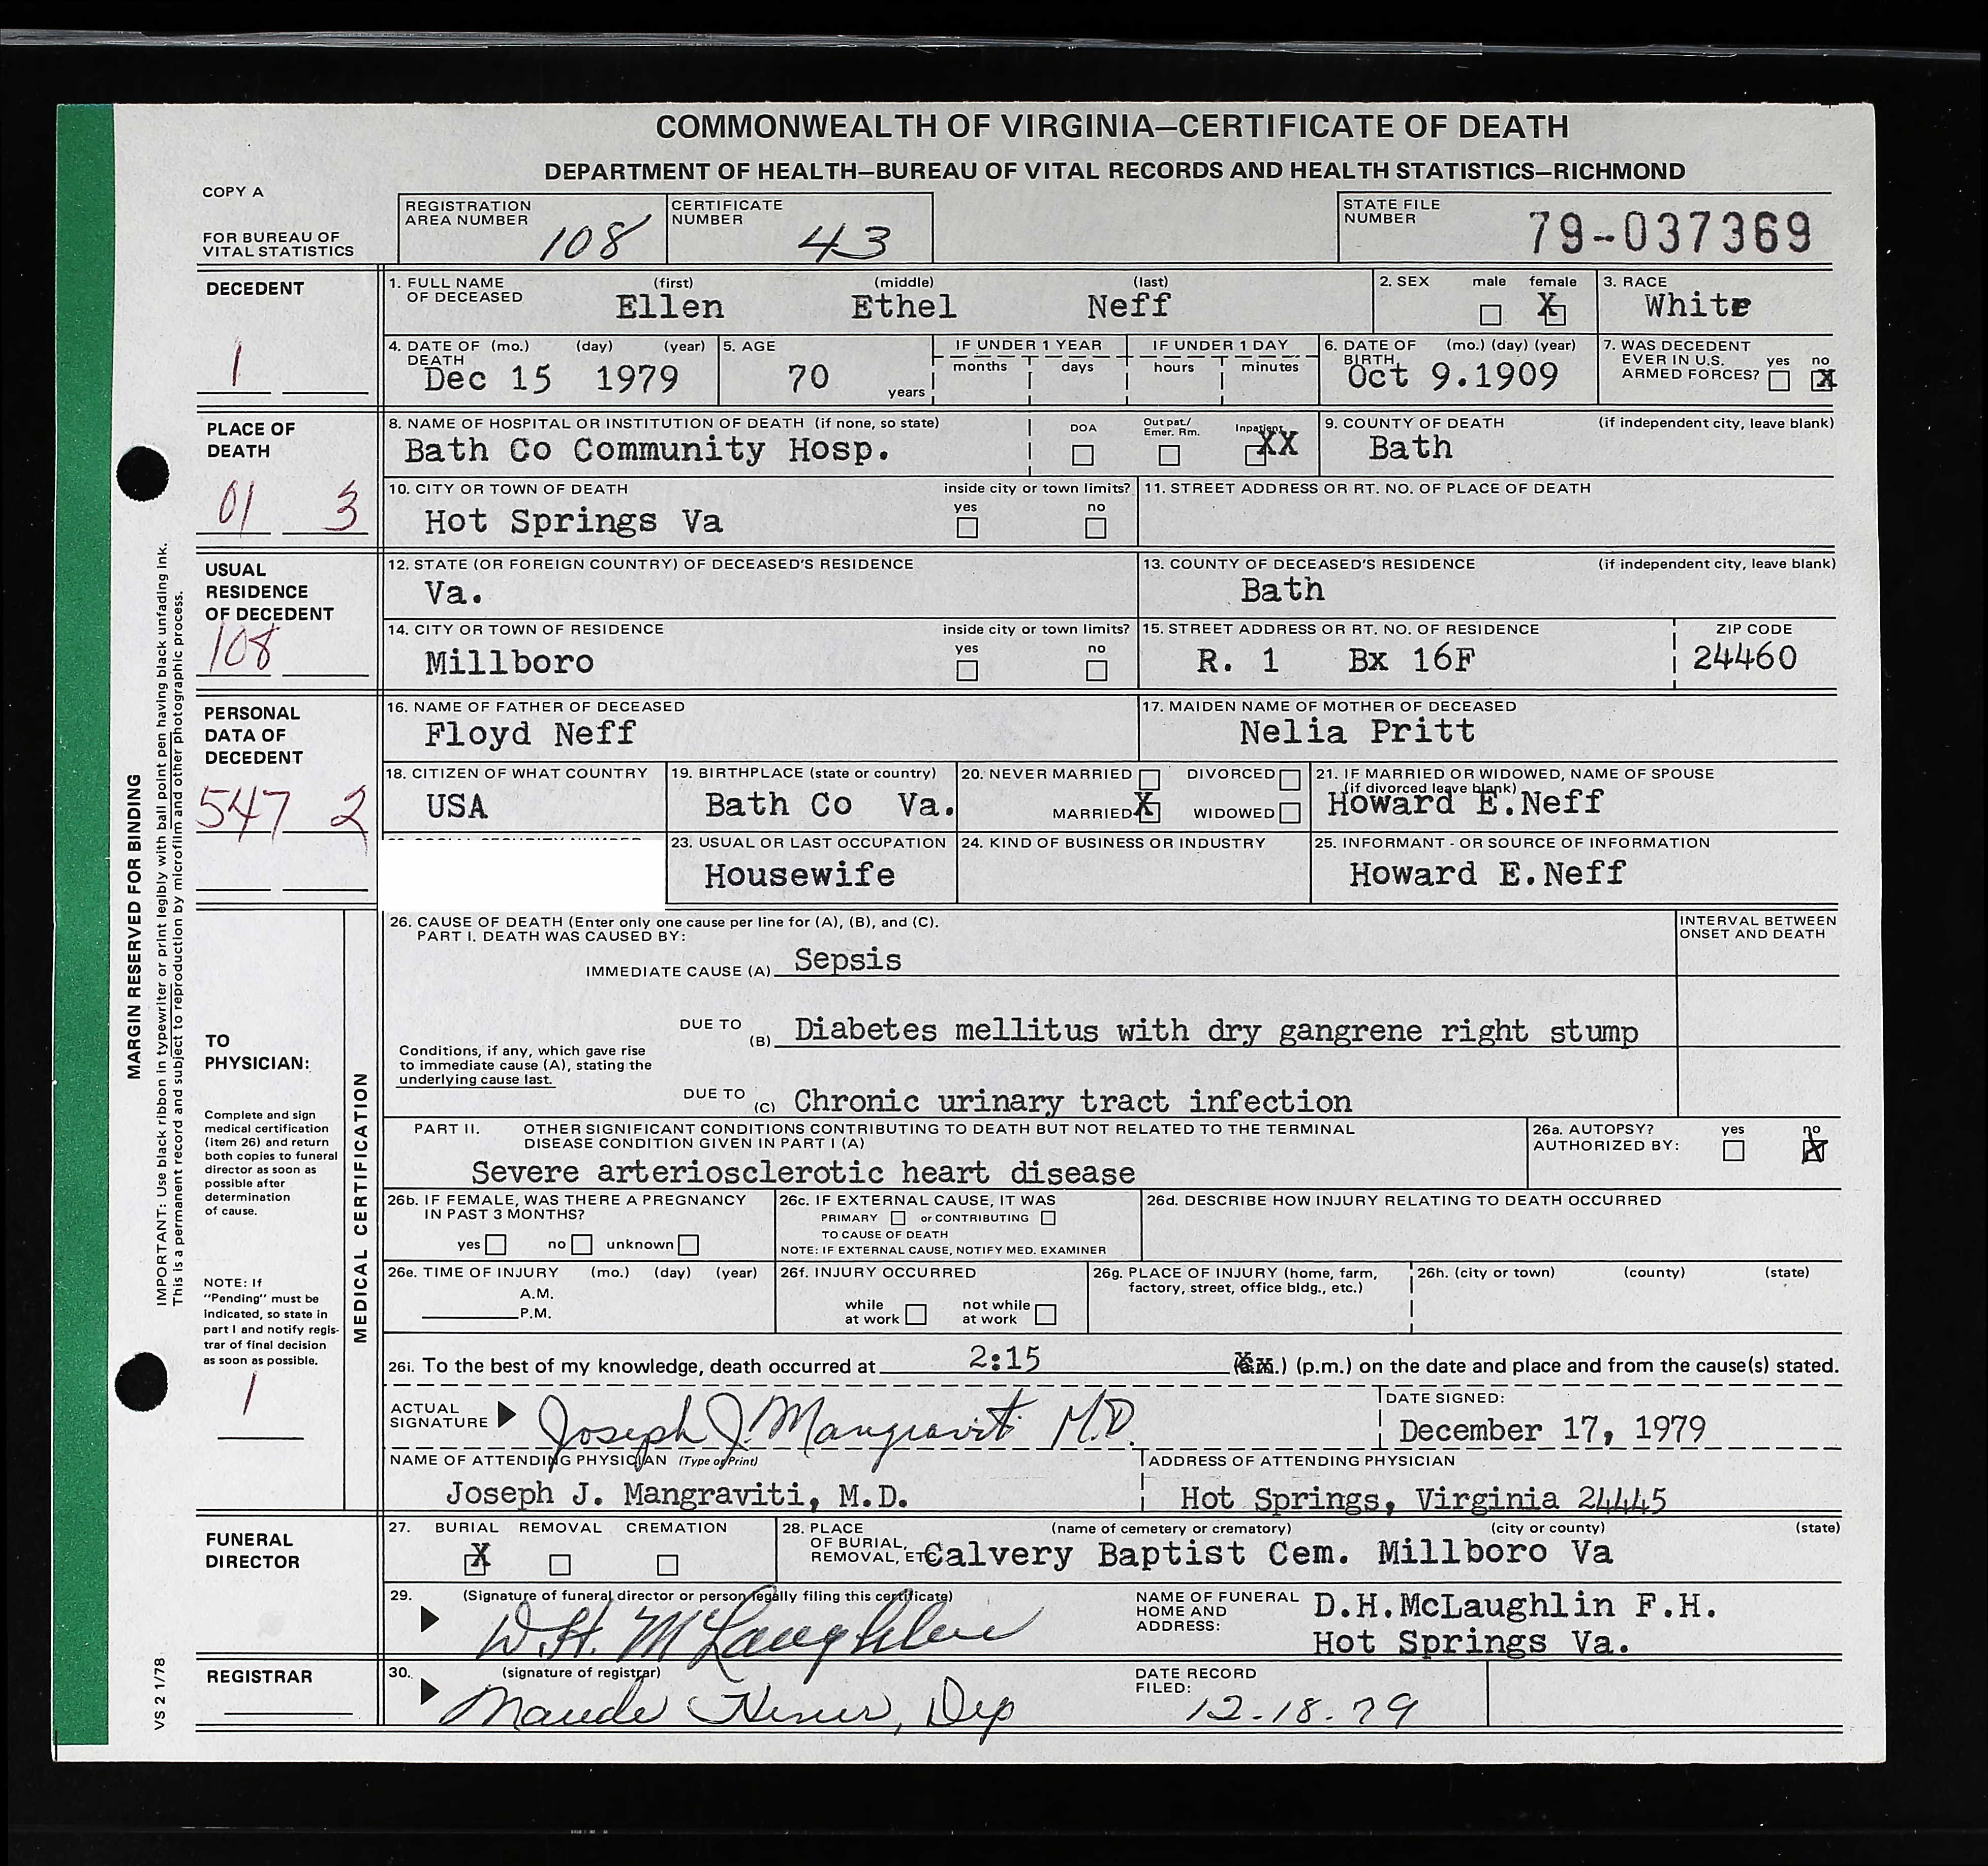 COMMONWEALTH OF VIRGINIA—CERTIFICATE OF DEATH
DEPARTMENT OF HEALTH—BUREAU OF VITAL RECORDS AND HEALTH STATISTICS—RICHMOND
COPY A
FOR BUREAU OF
VITAL STATISTICS
REGISTRATION
AREA NUMBER 108
CERTIFICATE
NUMBER 43
STATE FILE
NUMBER 79-037369
DECEDENT
1
1. FULL NAME (first) (middle) (last)
OF DECEASED Ellen Ethel Neff
2. SEX male female X
3. RACE
White
4. DATE OF (mo.) (day) (year)
DEATH
Dec 15 1979
5. AGE
70 years
IF UNDER 1 YEAR
months days
IF UNDER 1 DAY
hours minutes
6. DATE OF (mo.) (day) (year)
BIRTH
Oct 9.1909
7. WAS DECEDENT
EVER IN U.S. yes no
ARMED FORCES? X
PLACE OF
DEATH
01 3
8. NAME OF HOSPITAL OR INSTITUTION OF DEATH (if none, so state)
Bath Co Community Hosp.
DOA Out pat./ Emer. Rm. Inpatient XX
9. COUNTY OF DEATH (if independent city, leave blank)
Bath
10. CITY OR TOWN OF DEATH inside city or town limits?
Hot Springs Va yes no
11. STREET ADDRESS OR RT. NO. OF PLACE OF DEATH
USUAL
RESIDENCE
OF DECEDENT
108
12. STATE (OR FOREIGN COUNTRY) OF DECEASED'S RESIDENCE
Va.
13. COUNTY OF DECEASED'S RESIDENCE (if independent city, leave blank)
Bath
14. CITY OR TOWN OF RESIDENCE inside city or town limits?
Millboro yes no
15. STREET ADDRESS OR RT. NO. OF RESIDENCE
R. 1 Bx 16F
ZIP CODE
24460
PERSONAL
DATA OF
DECEDENT
547 2
16. NAME OF FATHER OF DECEASED
Floyd Neff
17. MAIDEN NAME OF MOTHER OF DECEASED
Nelia Pritt
18. CITIZEN OF WHAT COUNTRY
USA
19. BIRTHPLACE (state or country)
Bath Co Va.
20. NEVER MARRIED DIVORCED
MARRIED X WIDOWED
21. IF MARRIED OR WIDOWED, NAME OF SPOUSE
(if divorced leave blank)
Howard E.Neff
23. USUAL OR LAST OCCUPATION
Housewife
24. KIND OF BUSINESS OR INDUSTRY
25. INFORMANT - OR SOURCE OF INFORMATION
Howard E.Neff
26. CAUSE OF DEATH (Enter only one cause per line for (A), (B), and (C).
PART I. DEATH WAS CAUSED BY:
INTERVAL BETWEEN
ONSET AND DEATH
IMMEDIATE CAUSE (A) Sepsis
DUE TO (B) Diabetes mellitus with dry gangrene right stump
Conditions, if any, which gave rise
to immediate cause (A), stating the
underlying cause last.
DUE TO (C) Chronic urinary tract infection
PART II. OTHER SIGNIFICANT CONDITIONS CONTRIBUTING TO DEATH BUT NOT RELATED TO THE TERMINAL
DISEASE CONDITION GIVEN IN PART I (A)
Severe arteriosclerotic heart disease
26a. AUTOPSY? yes no
AUTHORIZED BY: X
26b. IF FEMALE, WAS THERE A PREGNANCY
IN PAST 3 MONTHS?
yes no unknown
26c. IF EXTERNAL CAUSE, IT WAS
PRIMARY or CONTRIBUTING
TO CAUSE OF DEATH
NOTE: IF EXTERNAL CAUSE, NOTIFY MED. EXAMINER
26d. DESCRIBE HOW INJURY RELATING TO DEATH OCCURRED
26e. TIME OF INJURY (mo.) (day) (year)
A.M.
P.M.
26f. INJURY OCCURRED
while at work not while at work
26g. PLACE OF INJURY (home, farm,
factory, street, office bldg., etc.)
26h. (city or town) (county) (state)
26i. To the best of my knowledge, death occurred at 2:15 (p.m.) on the date and place and from the cause(s) stated.
ACTUAL
SIGNATURE Joseph J. Mangraviti M.D.
DATE SIGNED:
December 17, 1979
NAME OF ATTENDING PHYSICIAN (Type or Print)
Joseph J. Mangraviti, M.D.
ADDRESS OF ATTENDING PHYSICIAN
Hot Springs, Virginia 24445
TO
PHYSICIAN:
Complete and sign
medical certification
(item 26) and return
both copies to funeral
director as soon as
possible after
determination
of cause.
NOTE: If
"Pending" must be
indicated, so state in
part I and notify regis-
trar of final decision
as soon as possible.
1
MEDICAL CERTIFICATION
FUNERAL
DIRECTOR
27. BURIAL REMOVAL CREMATION
X
28. PLACE (name of cemetery or crematory) (city or county) (state)
OF BURIAL,
REMOVAL, ETC. Calvery Baptist Cem. Millboro Va
29. (Signature of funeral director or person legally filing this certificate)
McLaughlin
NAME OF FUNERAL
HOME AND
ADDRESS:
D.H.McLaughlin F.H.
Hot Springs Va.
REGISTRAR
30. (signature of registrar)
Maude Dep
DATE RECORD
FILED: 12-18-79
MARGIN RESERVED FOR BINDING
IMPORTANT: Use black ribbon in typewriter or print legibly with ball point pen having black unfading ink.
This is a permanent record and subject to reproduction by microfilm and other photographic process.
VS 2 1/78